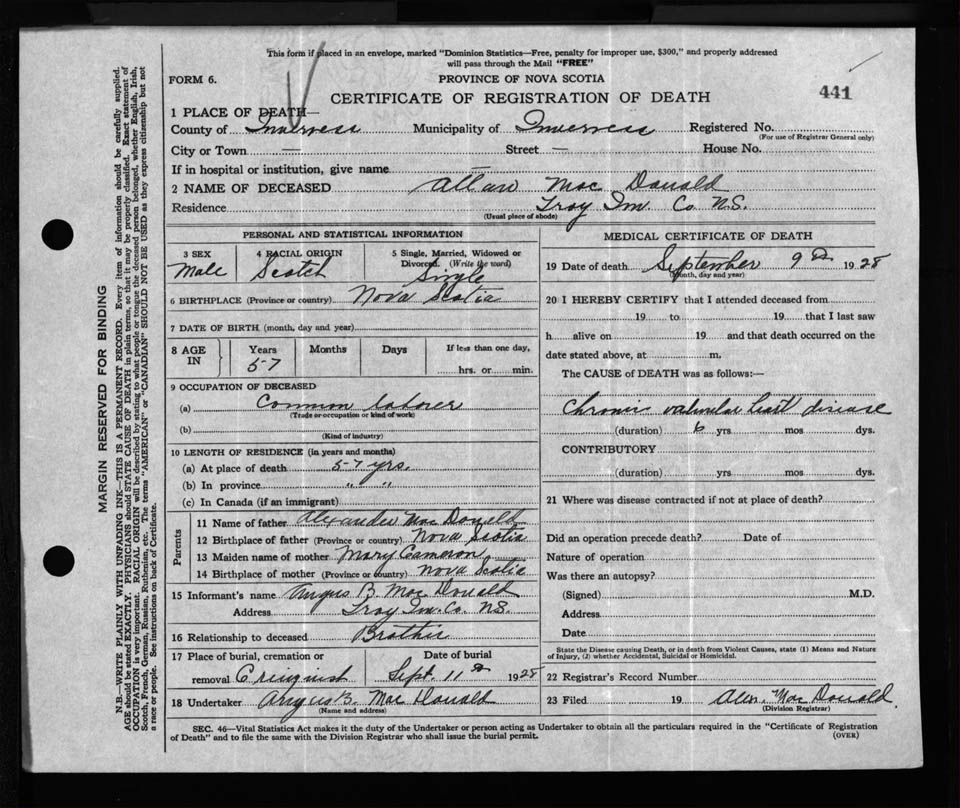 This form if placed in an envelope, marked "Dominion Statistics—Free, penalty for improper use, $300," and properly addressed
will pass through the Mail "FREE"
FORM 6.
PROVINCE OF NOVA SCOTIA
CERTIFICATE OF REGISTRATION OF DEATH
441
1 PLACE OF DEATH—
County of Inverness Municipality of Inverness Registered No.
(For use of Registrar General only)
City or Town — Street — House No.
If in hospital or institution, give name
2 NAME OF DECEASED Allan Mac Donald
Residence Troy Inv. Co N.S.
(Usual place of abode)
PERSONAL AND STATISTICAL INFORMATION
3 SEX 4 RACIAL ORIGIN 5 Single, Married, Widowed or
Divorced. (Write the word)
Male Scotch Single
6 BIRTHPLACE (Province or country) Nova Scotia
7 DATE OF BIRTH (month, day and year)
8 AGE IN Years Months Days If less than one day,
57 hrs. or min.
9 OCCUPATION OF DECEASED
(a) Common laborer
(Trade or occupation or kind of work)
(b)
(Kind of industry)
10 LENGTH OF RESIDENCE (in years and months)
(a) At place of death 57 yrs.
(b) In province " "
(c) In Canada (if an immigrant)
Parents
11 Name of father Alexander Mac Donald
12 Birthplace of father (Province or country) Nova Scotia
13 Maiden name of mother Mary Cameron
14 Birthplace of mother (Province or country) Nova Scotia
15 Informant's name Angus B. Mac Donald
Address Troy Inv. Co. N.S.
16 Relationship to deceased Brother
17 Place of burial, cremation or Date of burial
removal Creignish Sept. 11th 1928
18 Undertaker Angus B. Mac Donald
(Name and address)
MEDICAL CERTIFICATE OF DEATH
19 Date of death September 9th 1928
(Month, day and year)
20 I HEREBY CERTIFY that I attended deceased from
19 to 19 that I last saw
h alive on 19 and that death occurred on the
date stated above, at m.
The CAUSE of DEATH was as follows:—
Chronic valvular heart disease
(duration) 6 yrs mos dys.
CONTRIBUTORY
(duration) yrs mos dys.
21 Where was disease contracted if not at place of death?
Did an operation precede death? Date of
Nature of operation
Was there an autopsy?
(Signed) M.D.
Address
Date
State the Disease causing Death, or in death from Violent Causes, state (1) Means and Nature
of Injury, (2) whether Accidental, Suicidal or Homicidal.
22 Registrar's Record Number
23 Filed 19 Mac Donald
(Division Registrar)
SEC. 46—Vital Statistics Act makes it the duty of the Undertaker or person acting as Undertaker to obtain all the particulars required in the "Certificate of Registration
of Death" and to file the same with the Division Registrar who shall issue the burial permit.
(OVER)
MARGIN RESERVED FOR BINDING
N.B.—WRITE PLAINLY WITH UNFADING INK—THIS IS A PERMANENT RECORD. Every item of information should be carefully supplied.
AGE should be stated EXACTLY. PHYSICIANS should STATE CAUSE OF DEATH in plain terms, so that it may be properly classified. Exact statement of
OCCUPATION is very important. RACIAL ORIGIN will be described by stating to what people or tongue the deceased person belonged, whether English, Irish,
Scotch, French, German, Russian, Ruthenian, etc. The terms "AMERICAN" or "CANADIAN" SHOULD NOT BE USED as they express citizenship but not
a race or people. See instructions on back of Certificate.